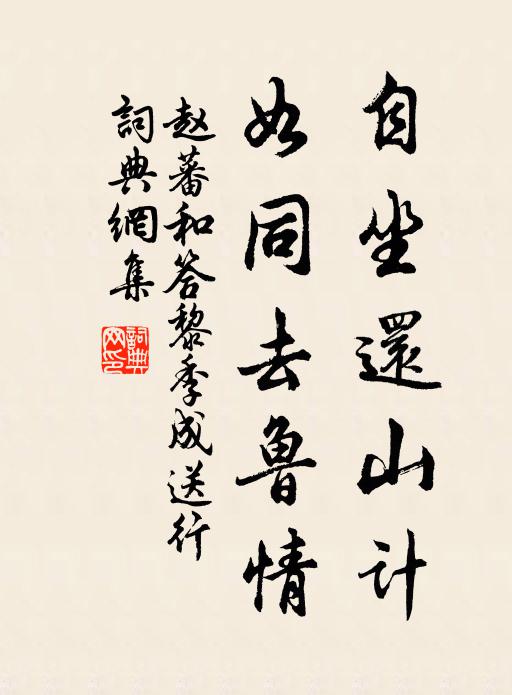 自坐還山計
如同去魯情
赵蕃和答黎季成送行
詞典網集
詞典网印